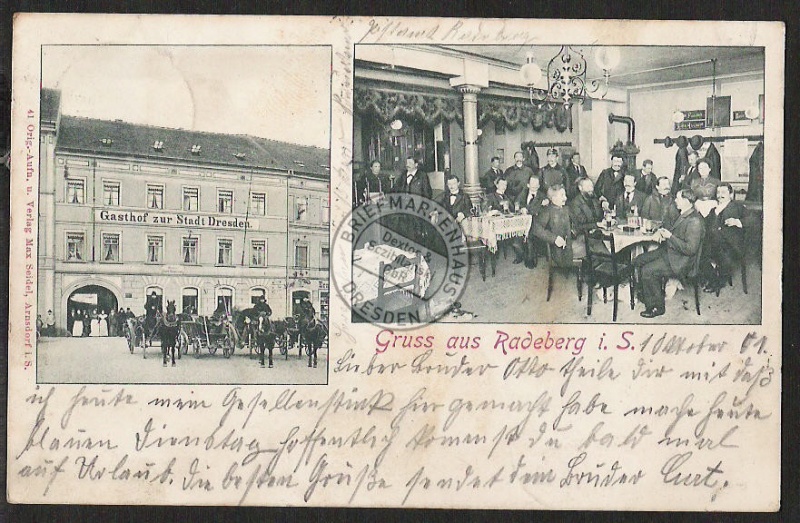 41 Orig.-Aufn. u. Verlag Max Seidel, Arnsdorf i. S.
Gasthof zur Stadt Dresden.
BRIEFMARKENHAUS
Dexter &
Sczihalla
GbR
DRESDEN
Gruss aus Radeberg i. S. 1 Oktober 01.
Lieber Bruder Otto theile Dir mit daß
ich heute mein Gesellenstück hier gemacht habe mache heute
blauen Dienstag hoffentlich kommst du bald mal
auf Urlaub. die besten Grüße sendet dein Bruder Curt.